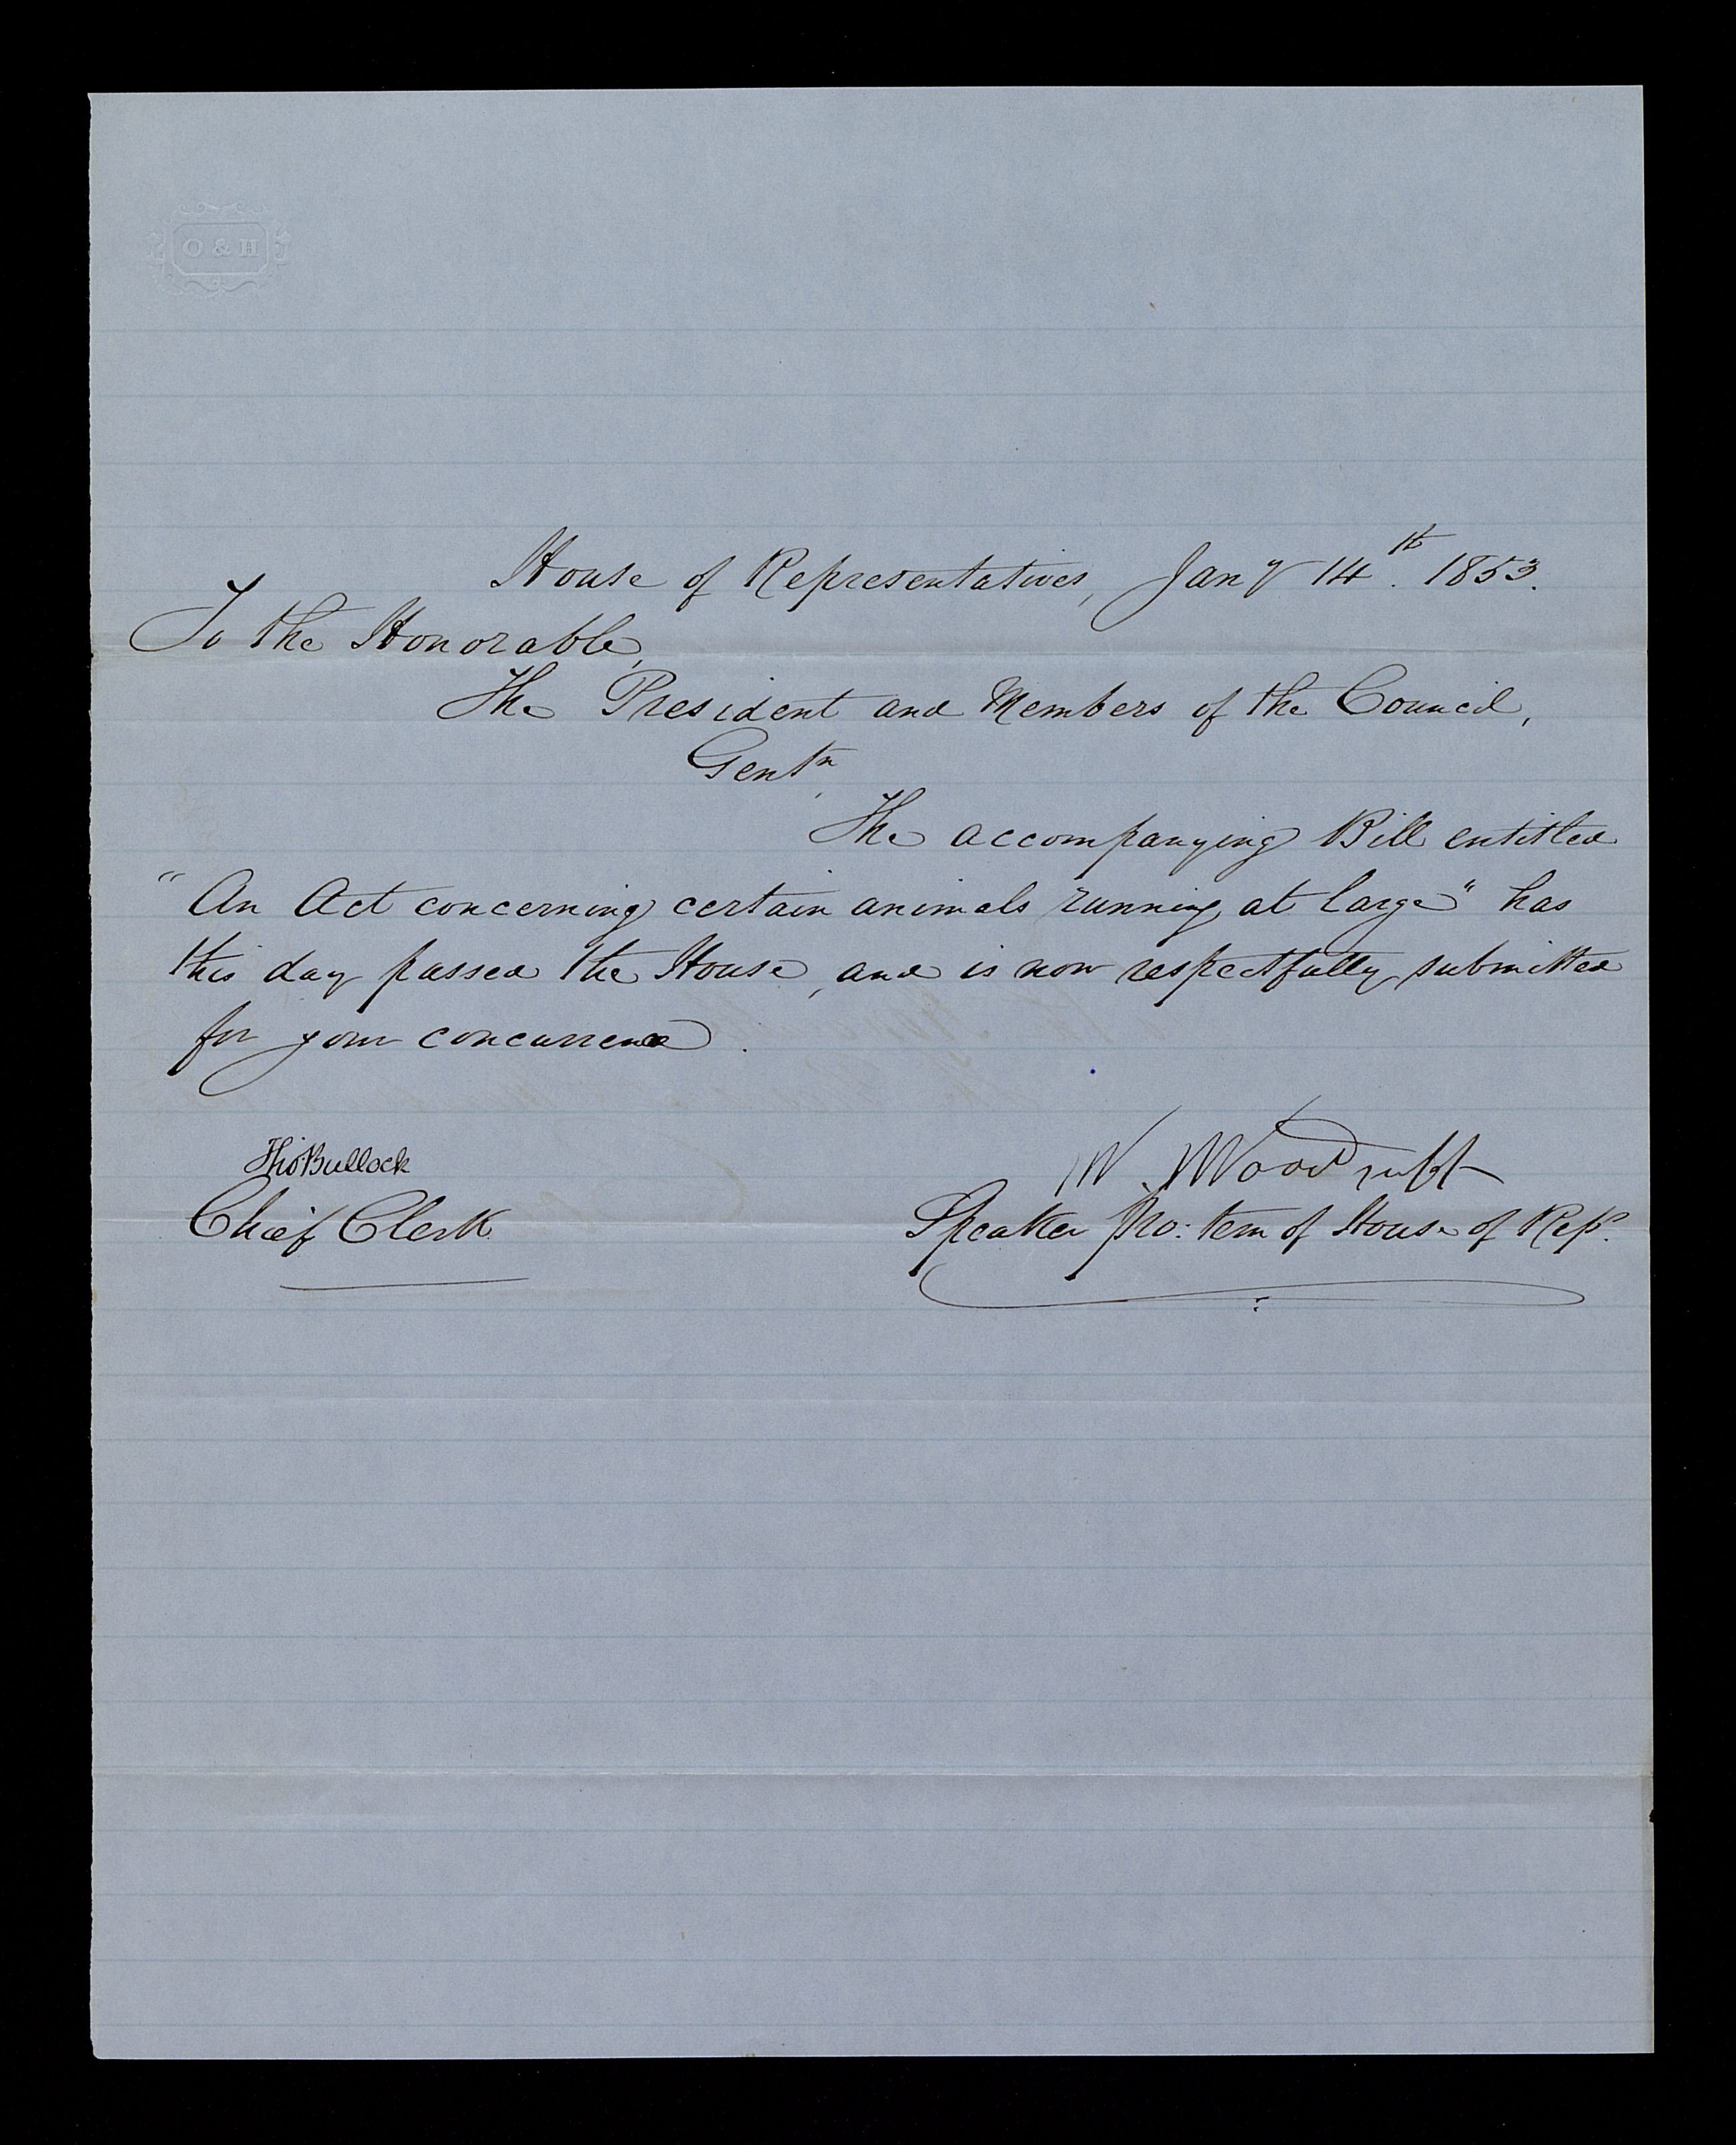 O & H
House of Representatives, Jany 14th. 1853.
To the Honorable,
The President and Members of the Council,
Gentn,
The accompanying Bill entitled
"An Act concerning certain animals running at large" has
this day passed the House, and is now respectfully submitted
for your concurrence.
Tho Bullock
W. Woodruff
Chief Clerk
Speaker pro: tem of House of Reps.